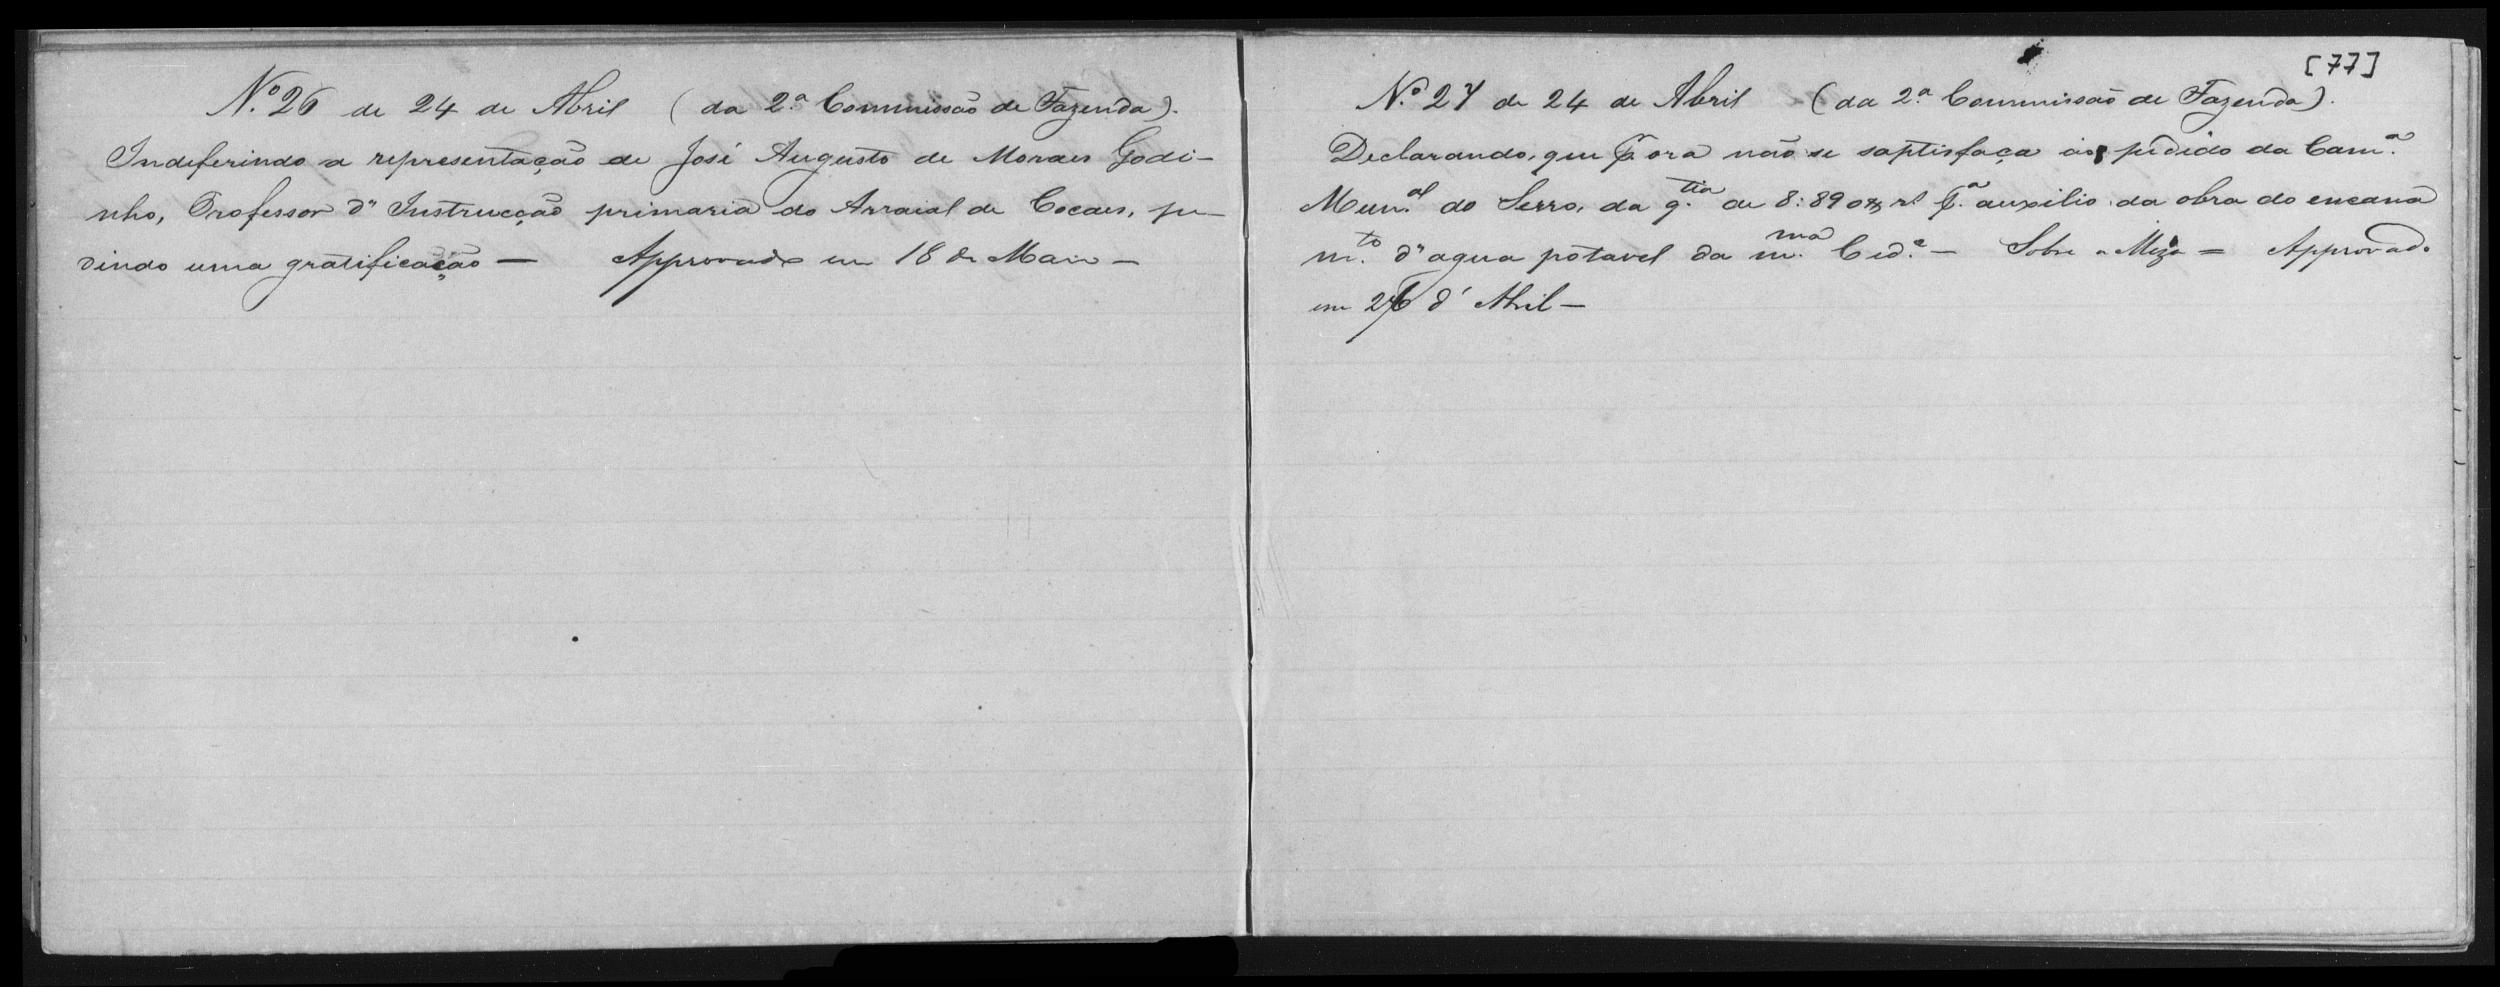 N.º 26 de 24 de Abril (da 2.ª Commissão de Fazenda).
Indeferindo a representação de José Augusto de Moraes Godi-
nho, Professor d'Instrucção primaria do Arraial de Cocaes, pe-
dindo uma gratificação — Approvado em 18 de Maio —
[77]
N.º 27 de 24 de Abril (da 2.ª Commissão de Fazenda).
Declarando, que p. ora não se saptisfaça ao pedido da Cam.ª
Mun.al do Serro, da q.tia de 8:890$ rs p.ª auxilio da obra do encana
m.to d'agua potavel da m.ma Cid.e — Sobre a Meza = Approvado
em 26 d'Abril —